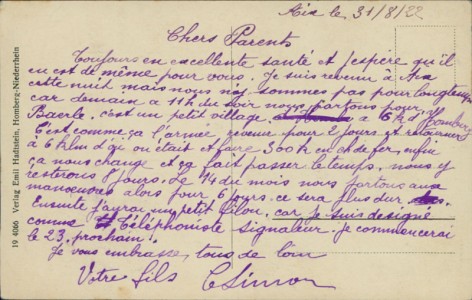 Aix le 31/8/22
Chers Parents
Toujours en excellente santé et j'espère qu'il
en est de même pour vous. Je suis revenu à Aix
cette nuit mais nous n'y sommes pas pour longtemps
car demain à 11h du soir nous partons pour
Baerle. c'est un petit village à 6 k d'Homberg
C'est comme ça l'armée, revenir pour 2 jours et retourner
à 6 klm d'où on était et faire 300 k en ch de fer, enfin
ça nous change et ça fait passer le temps. nous y
resterons 8 jours. Le 14 du mois nous partons aux
manoeuvres alors pour 6 jours. ce sera plus dur
Ensuite j'aurai un petit filon, car je suis désigné
comme Téléphoniste signaleur. Je commencerai
le 23, prochain!.
Je vous embrasse tous de loin
Votre fils CSimon
19 4066 Verlag Emil Hadtstein, Homberg-Niederrhein